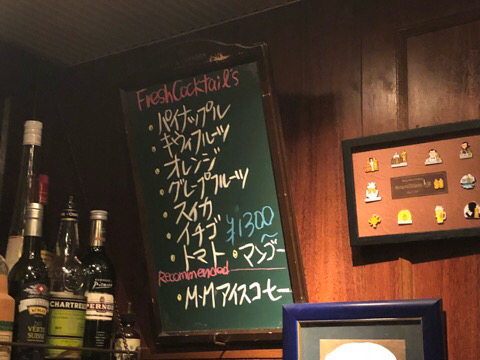 FreshCocktail's
・パイナップル
・キウィフルーツ
・オレンジ
・グレープフルーツ
・スイカ
・イチゴ ¥1300〜
・トマト ・マンゴー
Recommended
・M・Mアイスコーヒー
CHARTREU
PERNOD
VERTE
SUISSE